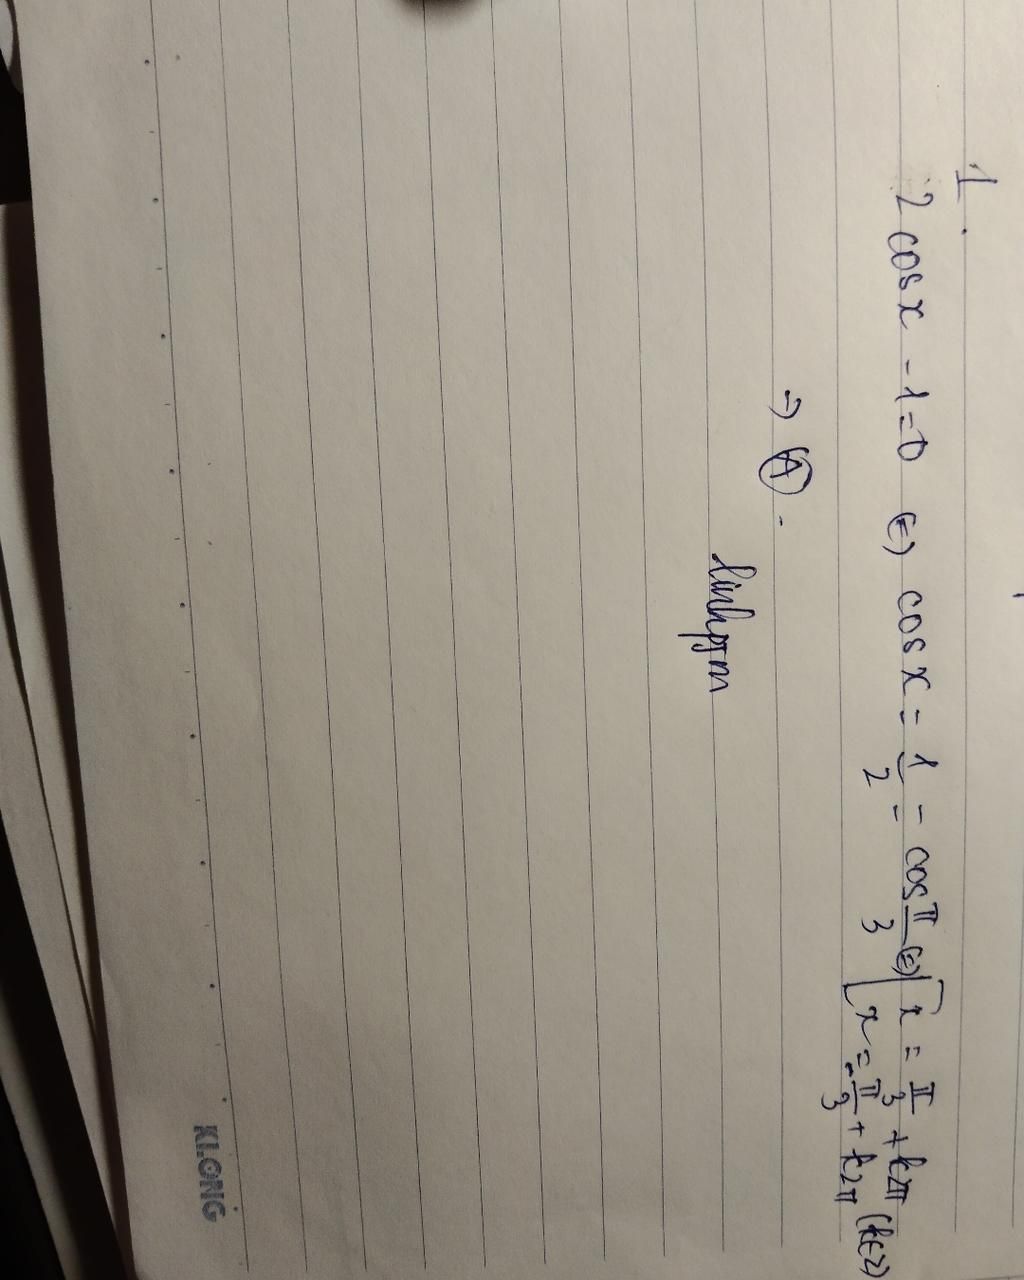 1.
2cosx - 1 = 0 (=) cosx = 1/2 = cos π/3 (=) [ x = π/3 + k2π
x = -π/3 + k2π (k∈Z)
=) (A).
linhpgm
KLONG